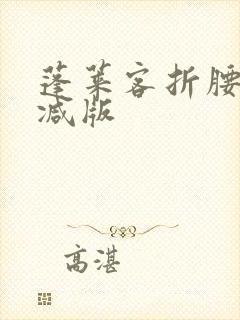 蓬莱客折腰
减版
高湛